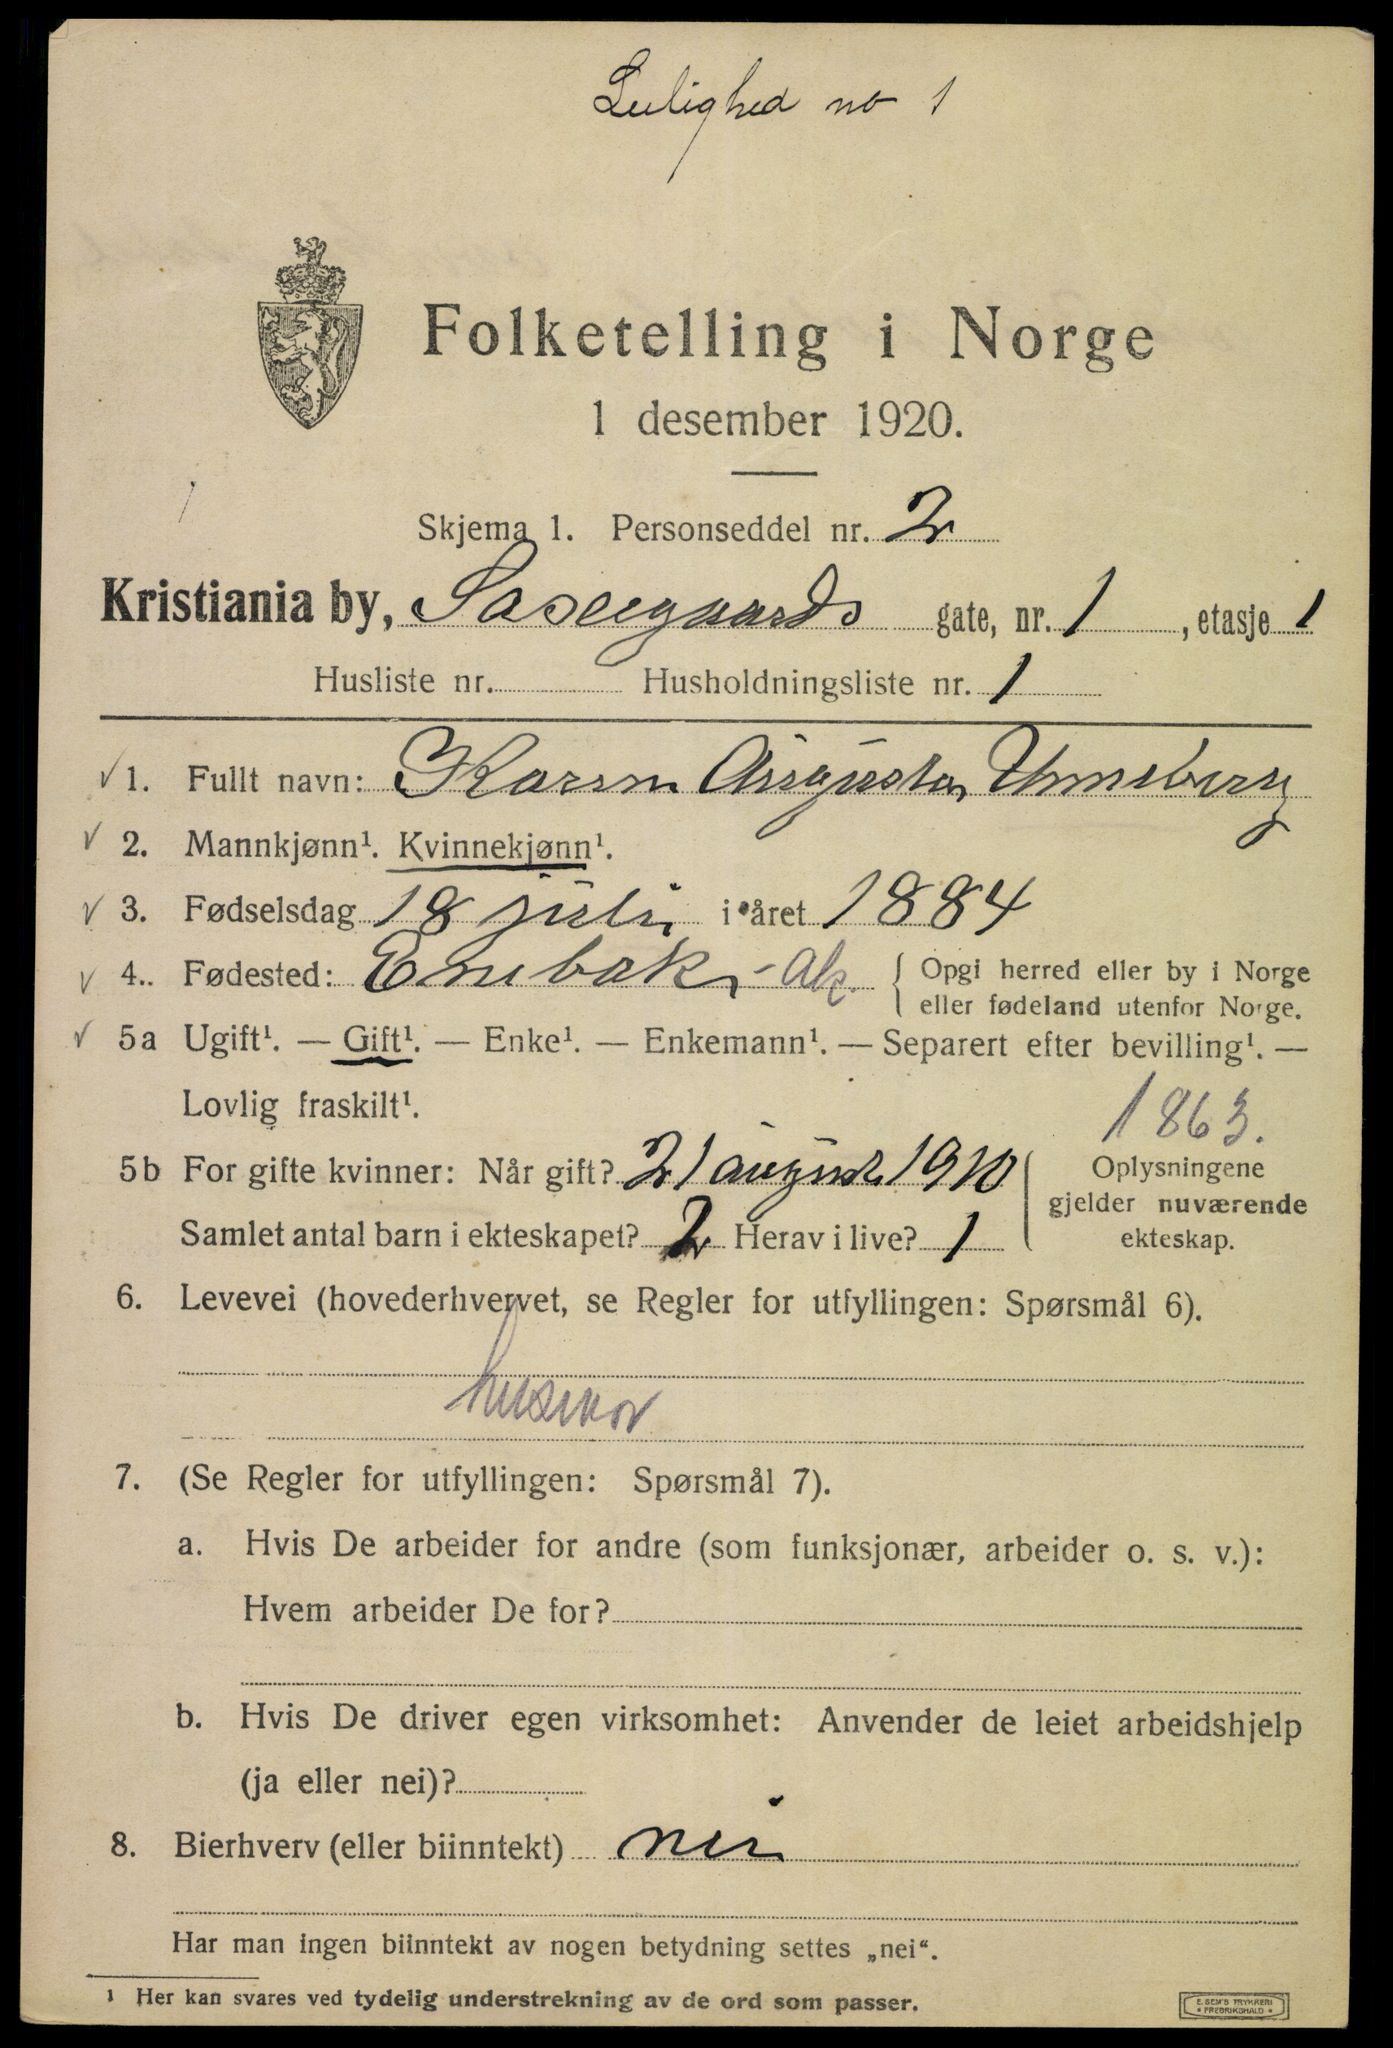 Leilighed no 1
Folketelling i Norge
1 desember 1920.
Skjema 1. Personseddel nr. 2
Kristiania by, Saxegaards gate, nr. 1, etasje 1
Husliste nr. Husholdningsliste nr. 1
✓ 1. Fullt navn: Karen Augusta Unneberg
✓ 2. Mannkjønn¹. Kvinnekjønn¹.
✓ 3. Fødselsdag 18 juli i året 1884
✓ 4. Fødested: Enebak - Ak. { Opgi herred eller by i Norge
eller fødeland utenfor Norge.
✓ 5a Ugift¹. — Gift¹. — Enke¹. — Enkemann¹. — Separert efter bevilling¹. —
Lovlig fraskilt¹.
1863.
5b For gifte kvinner: Når gift? 21 august 1910
Samlet antal barn i ekteskapet? 2 Herav i live? 1
Oplysningene
gjelder nuværende
ekteskap.
6. Levevei (hovederhvervet, se Regler for utfyllingen: Spørsmål 6).
husmor
7. (Se Regler for utfyllingen: Spørsmål 7).
a. Hvis De arbeider for andre (som funksjonær, arbeider o. s. v.):
Hvem arbeider De for?
b. Hvis De driver egen virksomhet: Anvender de leiet arbeidshjelp
(ja eller nei)?
8. Bierhverv (eller biinntekt) nei
Har man ingen biinntekt av nogen betydning settes „nei“.
1 Her kan svares ved tydelig understrekning av de ord som passer.
E. SEM'S TRYKKERI
* FREDRIKSHALD *